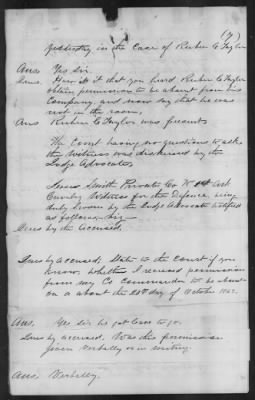 (7)
in the Case of Reuben C Taylor
Ans. Yes Sir.
Ques. How is it that you heard Reuben C Taylor
obtain permission to be absent from his
Company, and now say that he was
not in the room,
Ans Reuben C Taylor was present
The Court having no questions to ask,
the witness was dismissed by the
Judge Advocate,
Smith Private Co K 1st Ark
Cavalry Witness for the Defence being
duly Sworn by the Judge Advocate testified
as follows, viz—
Ques by the Accused.
Ques by Accused, State to the Court if you
know, whether I received permission
from my Co Commander to be absent
on or about the 28th day of October 1862.
Ans. Yes Sir he got leave to go.
Ques by Accused, Was this permission
given Verbally or in writing.
Ans. Verbally.